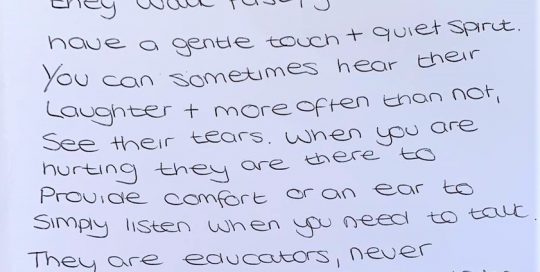 they walk
have a gentle touch + quiet spirit.
You can sometimes hear their
Laughter + more often than not,
See their tears. When you are
hurting they are there to
Provide comfort or an ear to
Simply listen when you need to talk.
They are educators, never